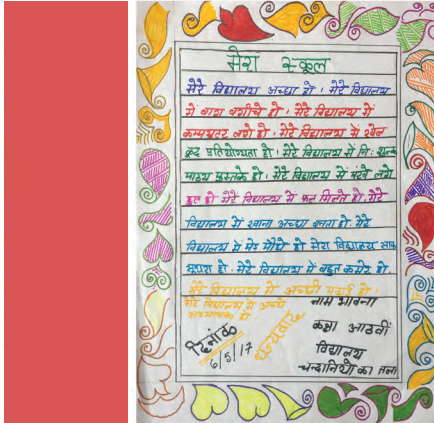 मेरा स्कूल
मेरे विद्यालय अच्छा हो। मेरे विद्यालय
में बाग बगीचे हो। मेरे विद्यालय में
कम्प्यूटर लगे हो। मेरे विद्यालय में खेल
कूद प्रतियोग्यता हो। मेरे विद्यालय में नि: शुल्क
पाठ्य पुस्तके हो। मेरे विद्यालय में पंखे लगे
हुए हो मेरे विद्यालय में फल मिलते हो मेरे
विद्यालय में खाना अच्छा बनता हो। मेरे
विद्यालय में पेड़ पौधे हो मेरा विद्यालय साफ
सुथरा हो। मेरे विद्यालय में बहुत कमरे हो
मेरे विद्यालय में अच्छी पढाई हो।
मेरे विद्यालय में अच्छे
अध्यापक हो
दिनांक
6/5/17
धन्यवाद
नाम भावना
कक्षा आठवीं
विद्यालय
चन्दानियो का तला